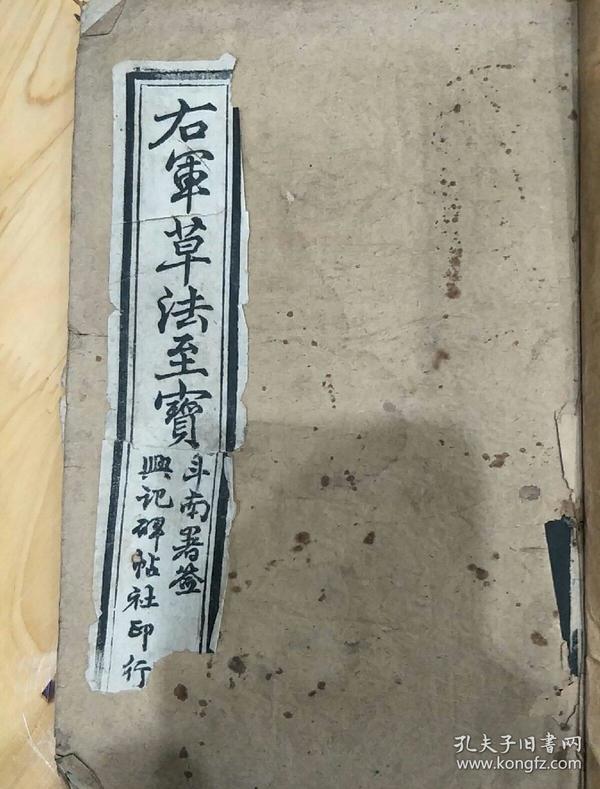 右軍草法至寶
斗南署簽
興記碑帖社印行
孔夫子旧書网
www.kongfz.com